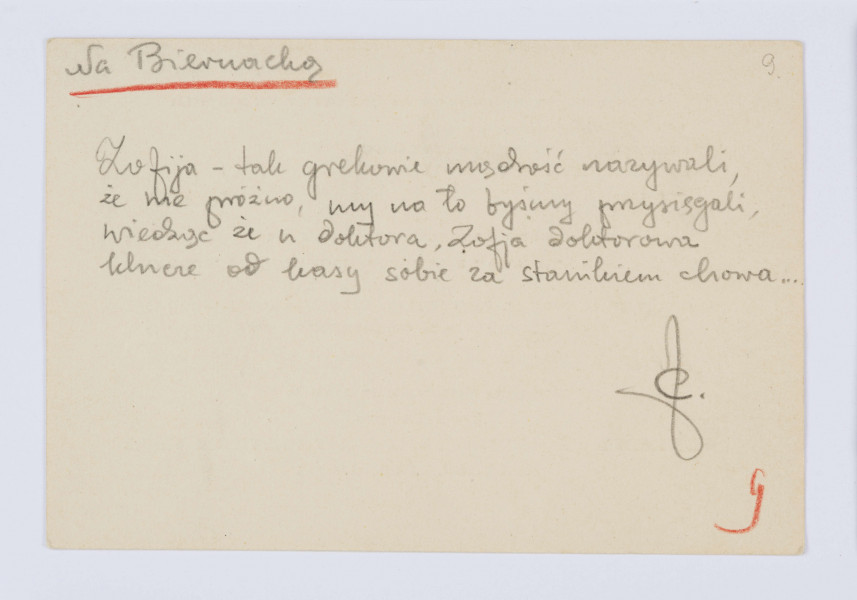 Na Biernacką
9.
Zofija – tak grekowie mądrość nazywali,
że nie próżno, my na to byśmy przysięgali,
wiedząc że u doktora, Zofja doktorowa
klucze od kasy sobie za stanikiem chowa...
9